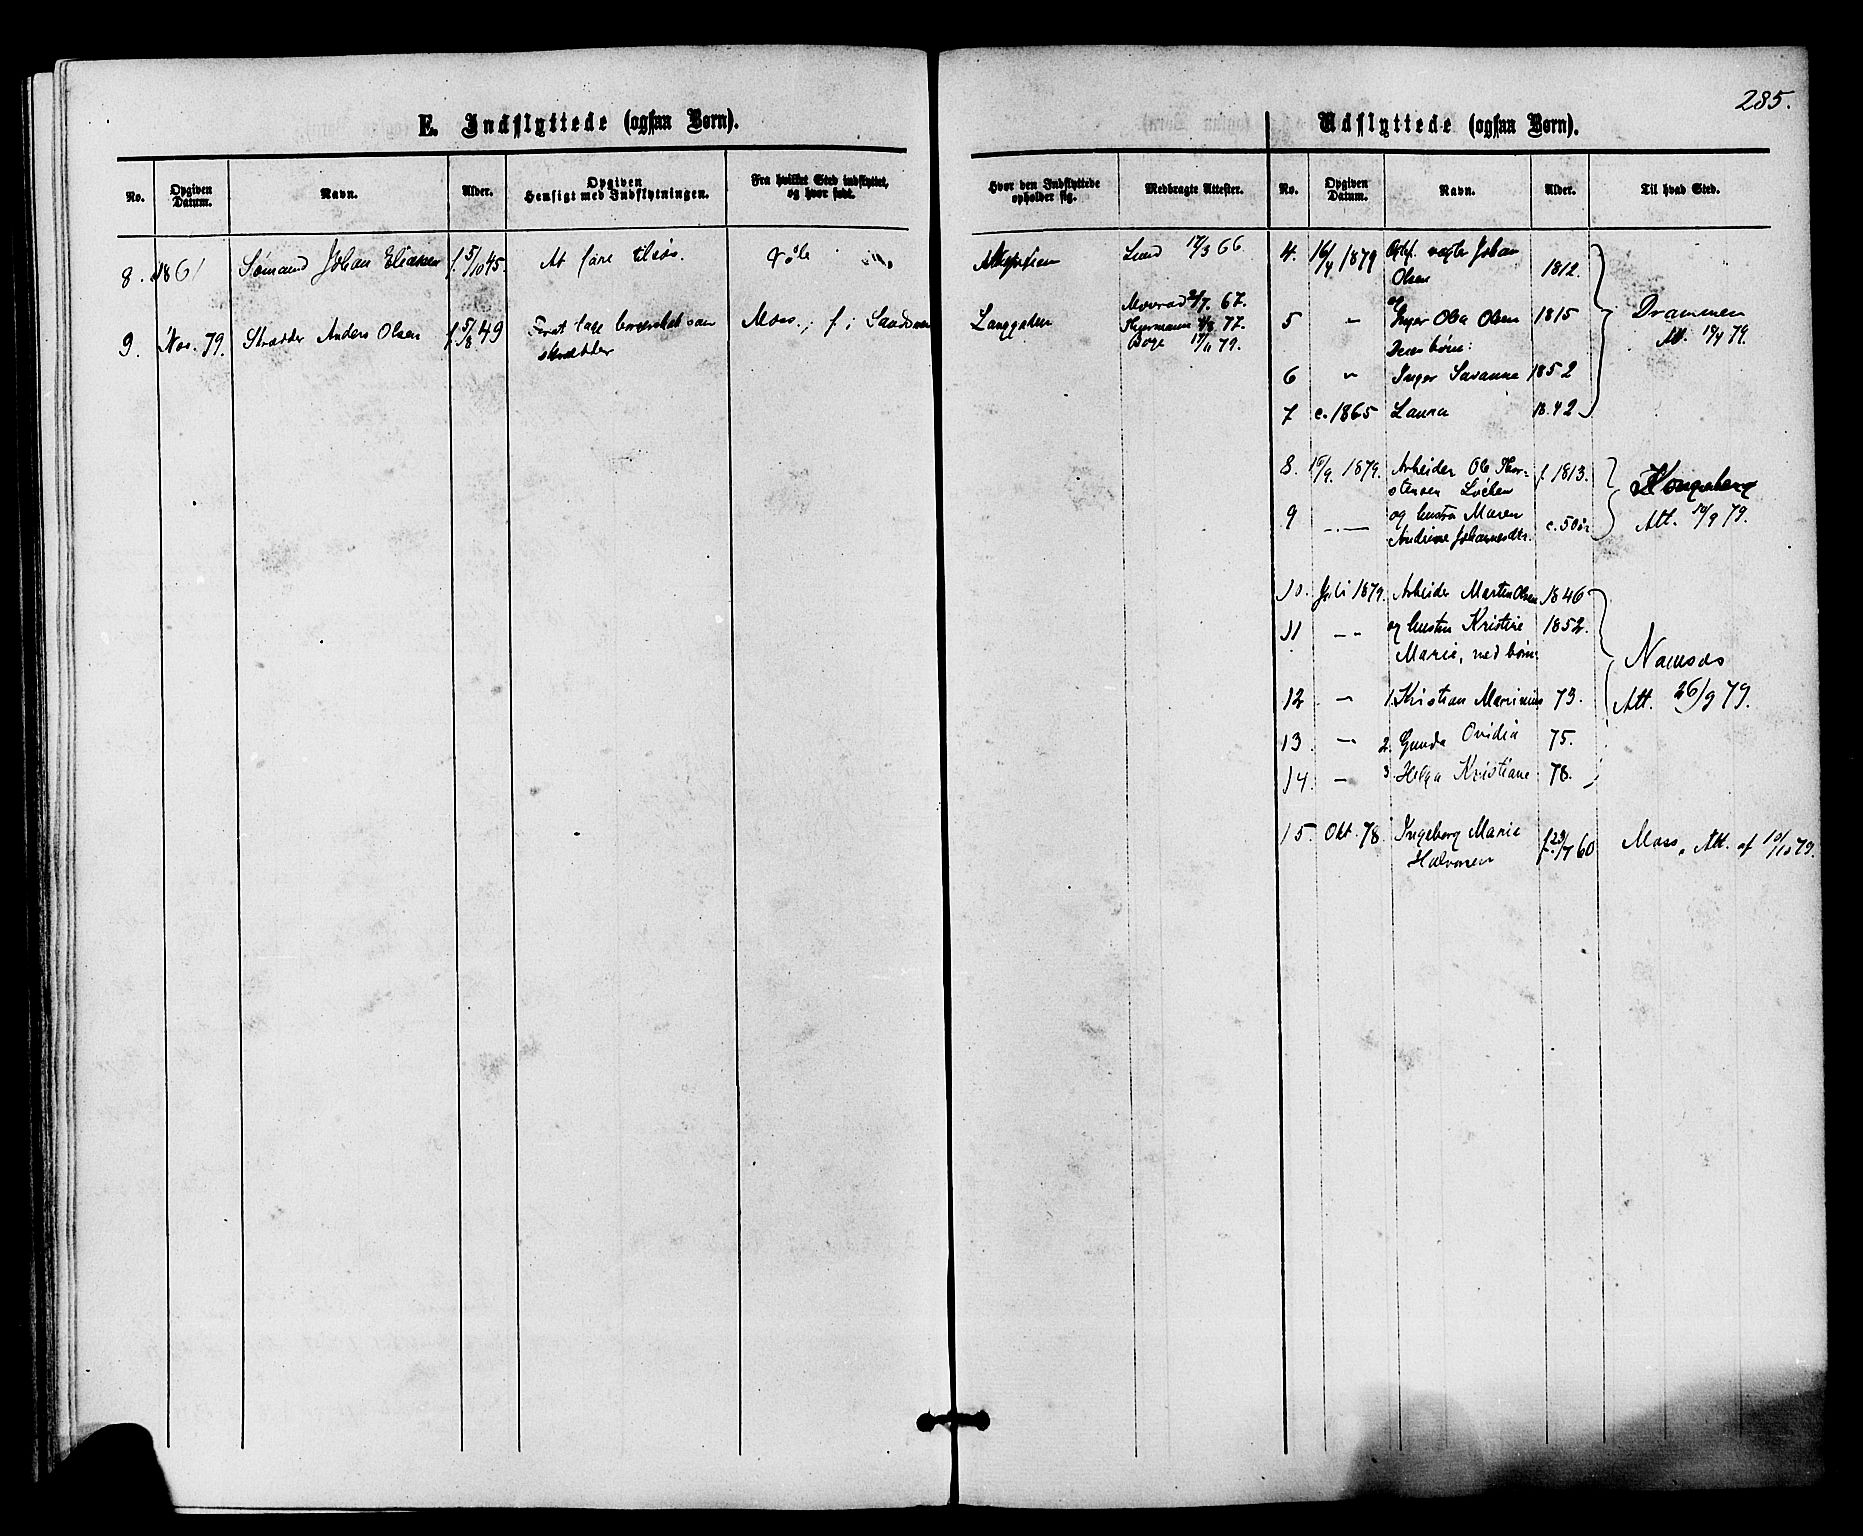 285.
E. Indflyttede (ogsaa Børn).
No. Opgiven Datum. Navn. Alder. Opgiven Hensigt med Indflytningen. Fra hvilket Sted indflyttet, og hvor født.
Hvor den Indflyttede opholder sig. Medbragte Attester.
8. 1861 Sømand Johan Eliasen f. 5/10 45. At fare tilsøs.
Lund 17/3 66.
9. Nov. 79. Skrædder Anders Olsen f. 5/8 49 tage borgerskab som
skrædder
Moss., f. i
Langgaden
67.
77.
Boge 17/11 79.
Udflyttede (ogsaa Børn).
No. Opgiven Datum. Navn. Alder. Til hvad Sted.
4. 16/4 1879 vægter Johan
Olsen 1812.
5 " og
Inger Olsen 1815
Deres børn:
Drammen
79.
6 " Inger Susanna 1852
7 c. 1865 Laura 18.42
8. 1879. Arbeider Ole Thor-
stensen f. 1813.
9 og hustru Maren
Andrine Johannesdtr. c. 50 år
Kongsberg
Att. 10/9 79.
10. Juli 1879. Arbeider Martin Olsen 1846
11 " og hustru Kristine 1852.
Marie, med børn:
12 " 1. Kristian Marinius 73.
13 " 2. Gunda Ovidia 75.
14. " 3. Helga Kristiane 78.
Namsos
Att. 26/9 79.
15. Okt. 78. Ingeborg Marie
Halvorsen f. 29/7 60
Moss, Att. af 10/10 79.